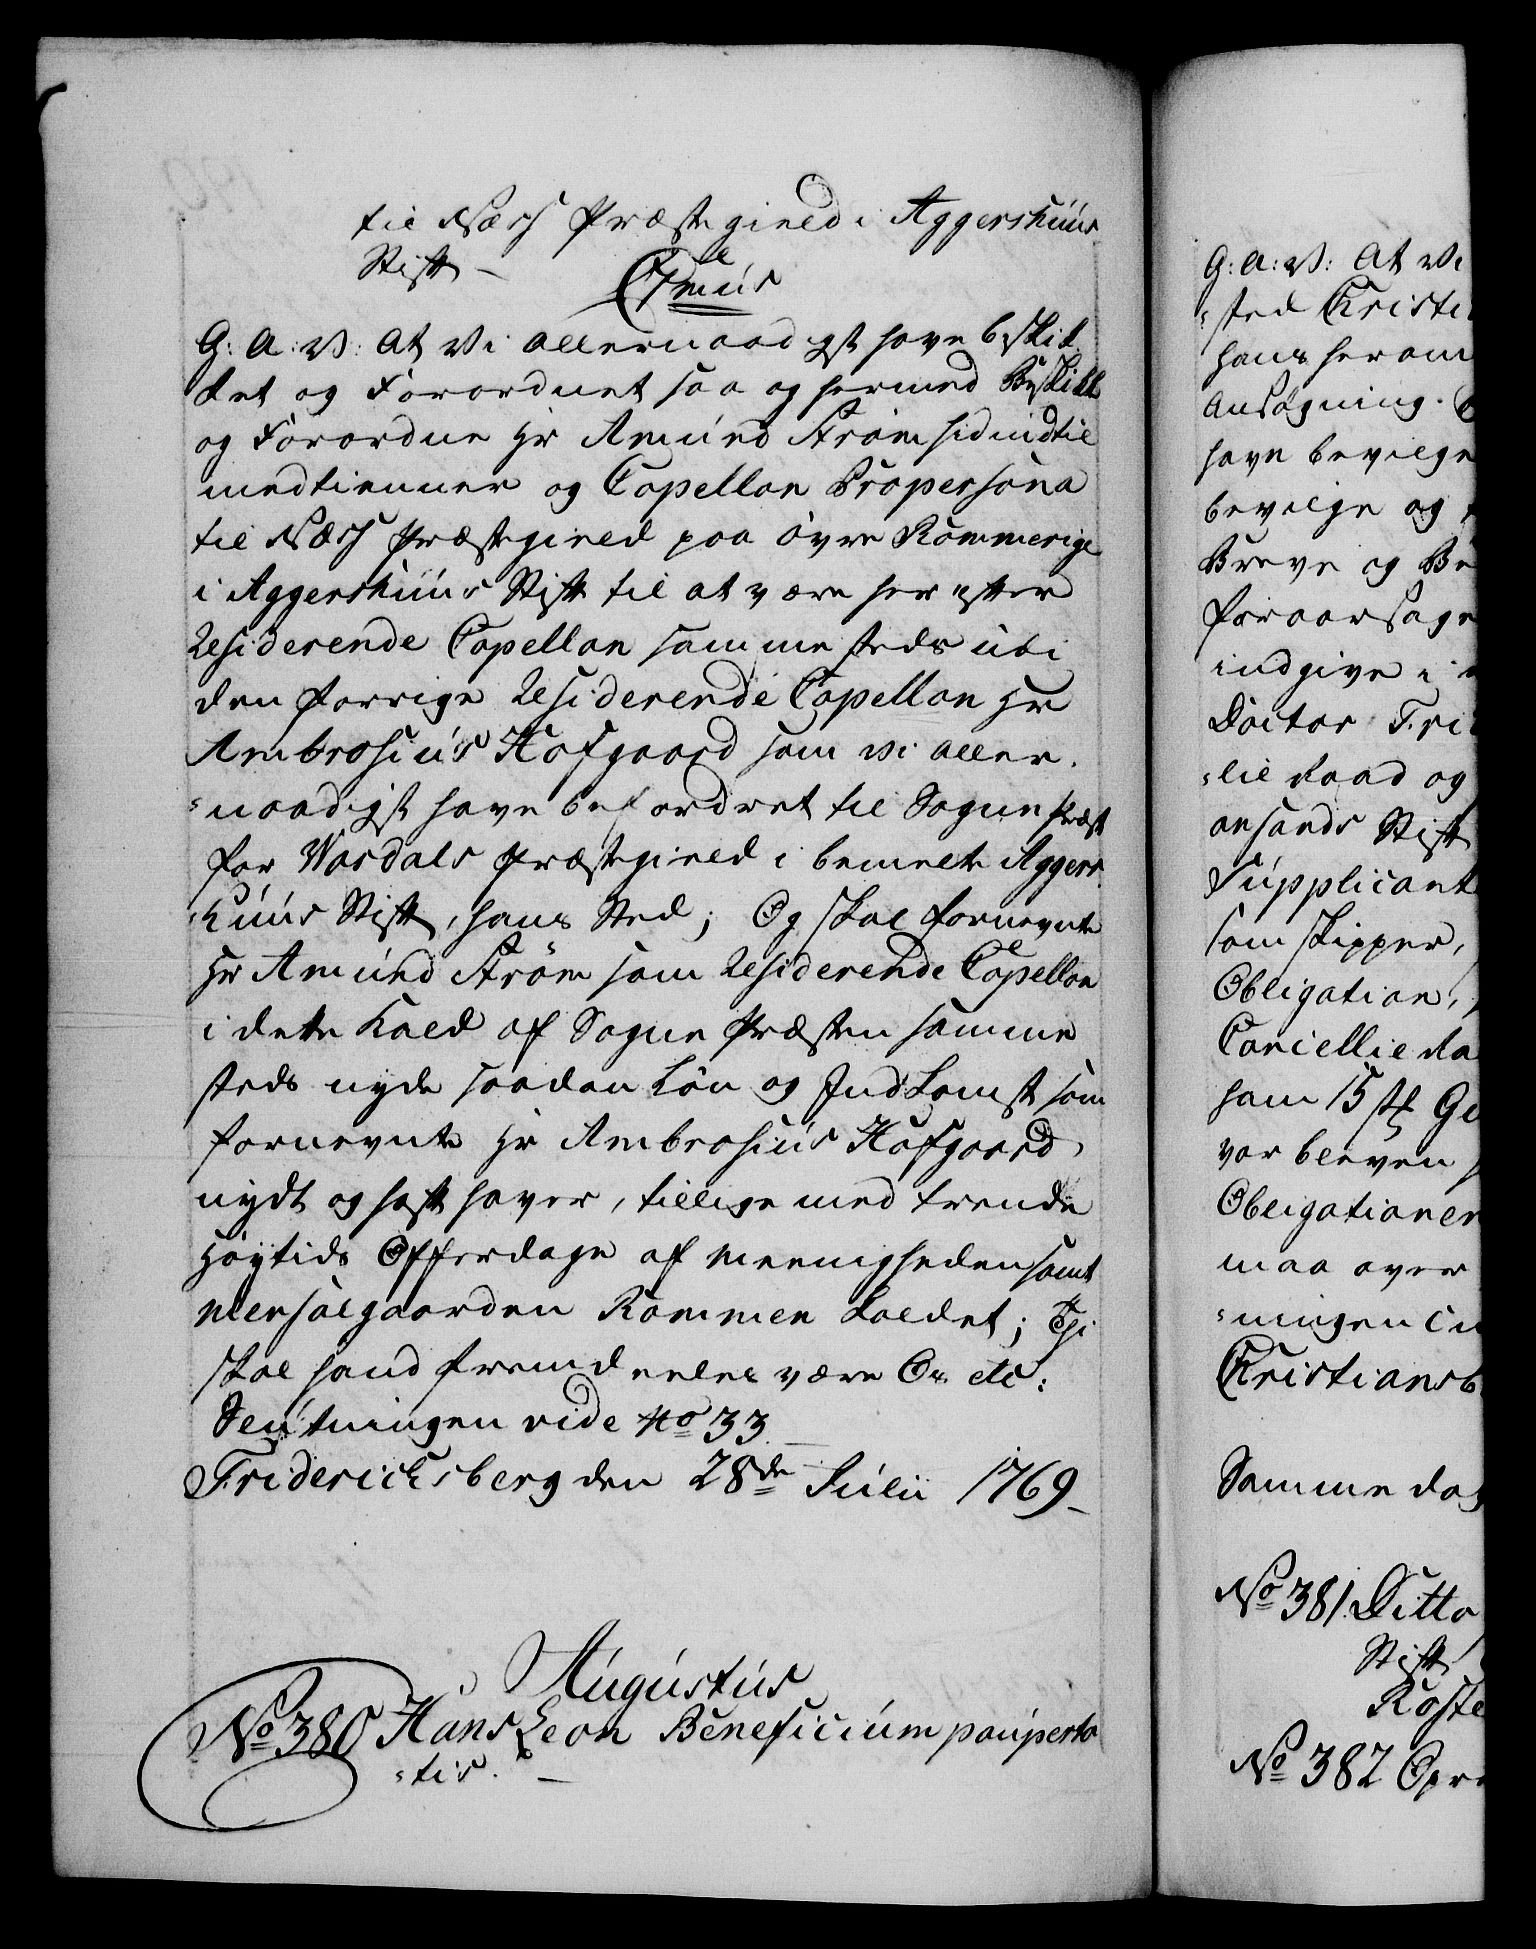 til Næss Præstegield i Aggershuus
Stift –
Cfmus
G: A: V: At Vi allernaadigst have beskik
ket og Forordnet saa og hermed Beskikke
og Forordne Hr Amund Strøm hidindtil
medtienner og Capellan Propersona
til Næss Præstegield paa øvre Rommerige
i Aggershuus Stift til at være her efter
Residerende Capellan sammesteds udi
den forrige Residerende Capellan Hr
Ambrosius Hofgaard som vi aller-
=naadigst have befordret til Sogne Præst
for Wardals Præstegield i bemelte Aggers
huus Stift, hans Sted; Og skal fornevnte
Hr Amund Strøm som Residerende Capellan
i dette Kald af Sogne Præsten samme
steds nyde saadan Løn og Indkomst som
fornevnte Hr Ambrosius Hofgaard
nydt og haft haver, tillige med trende
Høytids Offerdage af Meenigheden samt
Mensalgaarden Rommen kaldet; Thi
skal hand fremdeeles være Os etc:
Slutningen vide No 33
Fridericksberg den 28de Julii 1769–
Augustus
No 380 Hans Leon Beneficium pauperta
=tis. –
G: A: V: At Vi
=sted Christi
hans herom
Ansøgning
have bevilge
bevilge og
Breve og Be
foraarsage
indgive i
Doctor Fri
=lie Raad og
ansands Stift
Supplicant
som Skipper,
Obligation,
Cancellie Ra
ham 15 ß Ge
var bleven
Obligationer
maa over
=ningen
Christiansb
Samme dag
No 381. Ditto
Stift
Koste
No 382 Opr